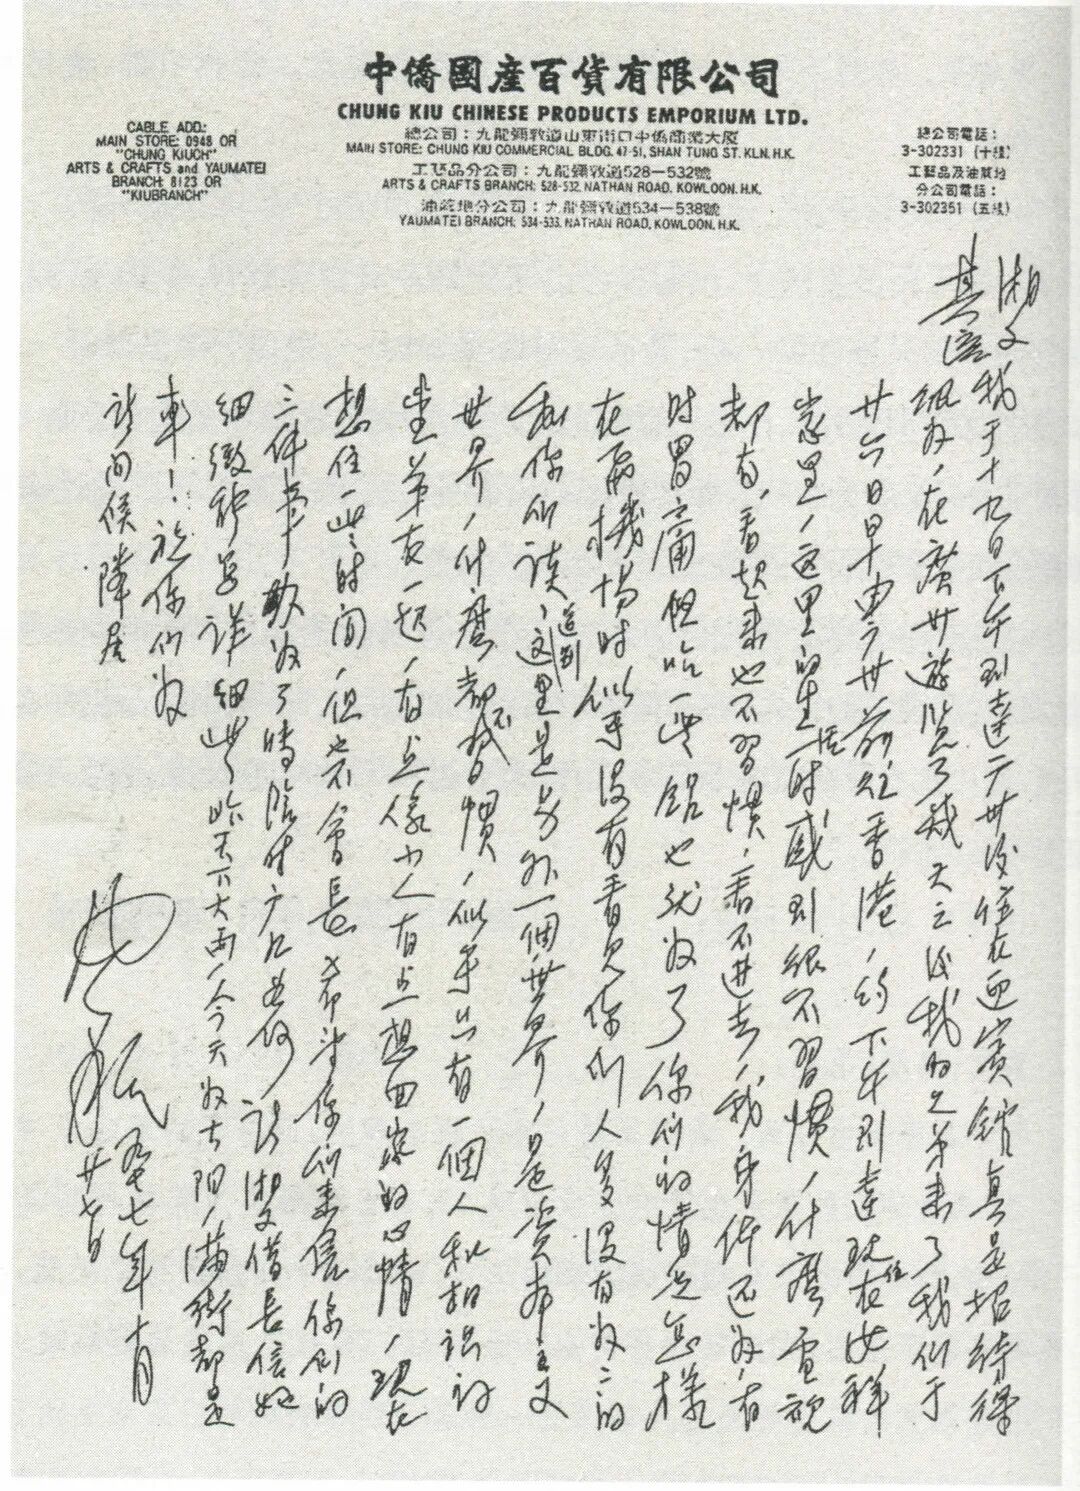 中僑國産百貨有限公司
CHUNG KIU CHINESE PRODUCTS EMPORIUM LTD.
總公司：九龍彌敦道山東街口中僑商業大廈
MAIN STORE: CHUNG KIU COMMERCIAL BLDG. 47-51, SHAN TUNG ST. KLN. H.K.
工藝品分公司：九龍彌敦道528—532號
ARTS & CRAFTS BRANCH: 528-532, NATHAN ROAD, KOWLOON, H.K.
油蔴地分公司：九龍彌敦道534—538號
YAUMATEI BRANCH: 534-538, NATHAN ROAD, KOWLOON, H.K.
CABLE ADD.:
MAIN STORE: 0948 OR
"CHUNG KIUCH"
ARTS & CRAFTS and YAUMATEI
BRANCH: 8123 OR
"KIUBRANCH"
總公司電話：
3-302331 (十綫)
工藝品及油蔴地
分公司電話：
3-302351 (五綫)
淑文
其
我于十九日下午到達广州後住在迎賓館真是招待得
很好，在廣州遊览了幾天之後我的兄弟来了我们于
廿六日早由广州前往香港，约下午到達现在住
家里，这里的生活一时感到很不習慣，什麽電視
都有，看起来也不習慣，看不進去，我身体还好，有
时胃痛但吃一些 也就好了你们的情况怎樣
在 機場时似乎没有看見你们人多没有好好的
和你们谈，這里是另外一個世界，是資本主义
世界，什麽都不習慣，似乎只有一個人和相識的
弟在一起，有点像小人有点想回家的心情，现在
想住一些时间，但也不會長希望你们来信你们的
三件事 如何 请 信長信
細緻 详細些 昨天下大雨，今天好太阳，满街都是
車！：祝你们好
请问候隣居
七年十月
廿七日